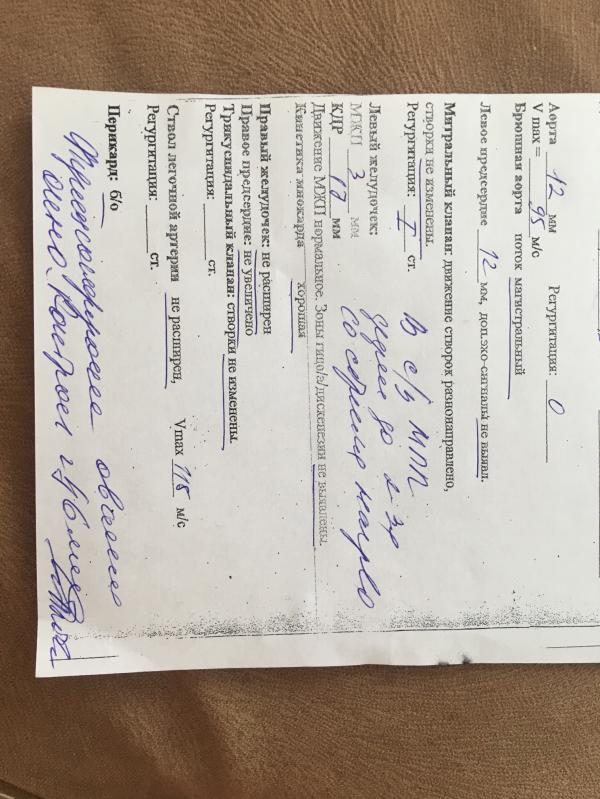 Аорта 12 мм Регургитация: 0
V max = 95 м/с
Брюшная аорта поток магистральный
Левое предсердие 12 мм, доп.эхо-сигналы не выявл.
Митральный клапан: движение створок разнонаправлено,
створки не изменены.
Регургитация: I ст.
В с/з МПП
Левый желудочек:
МЖП 3 мм
КДР 17 мм
до 2-3
со сбросом
Движение МЖП нормальное. Зоны гипо/а/дискенезии не выявлены.
Кинетика миокарда хорошая
Правый желудочек: не расширен
Правое предсердие: не увеличено
Трикуспидальный клапан: створки не изменены.
Регургитация: ст.
Ствол легочной артерии не расширен, Vmax 115 м/с
Регургитация: ст.
Перикард: б/о
овальное
окно. Контроль